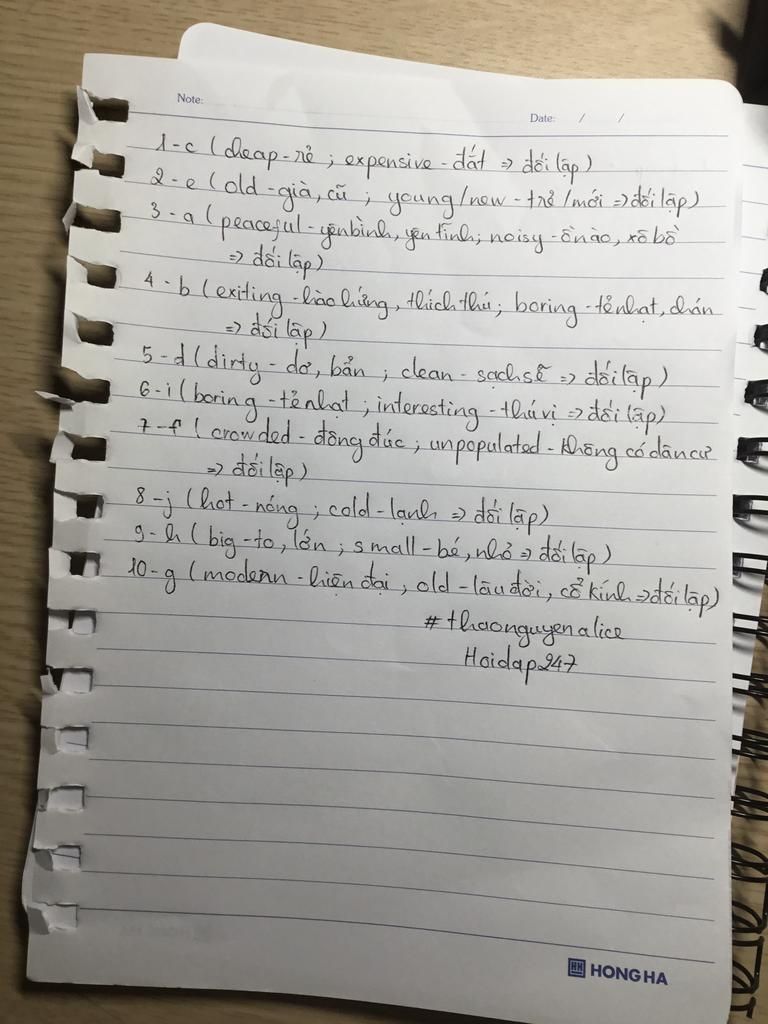 Note:
Date: / /
1-c (cheap-rẻ ; expensive-đắt => đối lập)
2-e (old-già, cũ ; young/new-trẻ/mới => đối lập)
3-a (peaceful-yên bình, yên tĩnh; noisy-ồn ào, xô bồ
=> đối lập)
4-b (exiting-hào hứng, thích thú; boring-tẻ nhạt, chán
=> đối lập)
5-d (dirty-dơ, bẩn ; clean-sạch sẽ => đối lập)
6-i (boring-tẻ nhạt ; interesting-thú vị => đối lập)
7-f (crowded-đông đúc ; unpopulated-không có dân cư
=> đối lập)
8-j (hot-nóng ; cold-lạnh => đối lập)
9-h (big-to, lớn ; small-bé, nhỏ => đối lập)
10-g (modern-hiện đại, old-lâu đời, cổ kính => đối lập)
#thaonguyenalice
Hoidap247
HH HONG HA